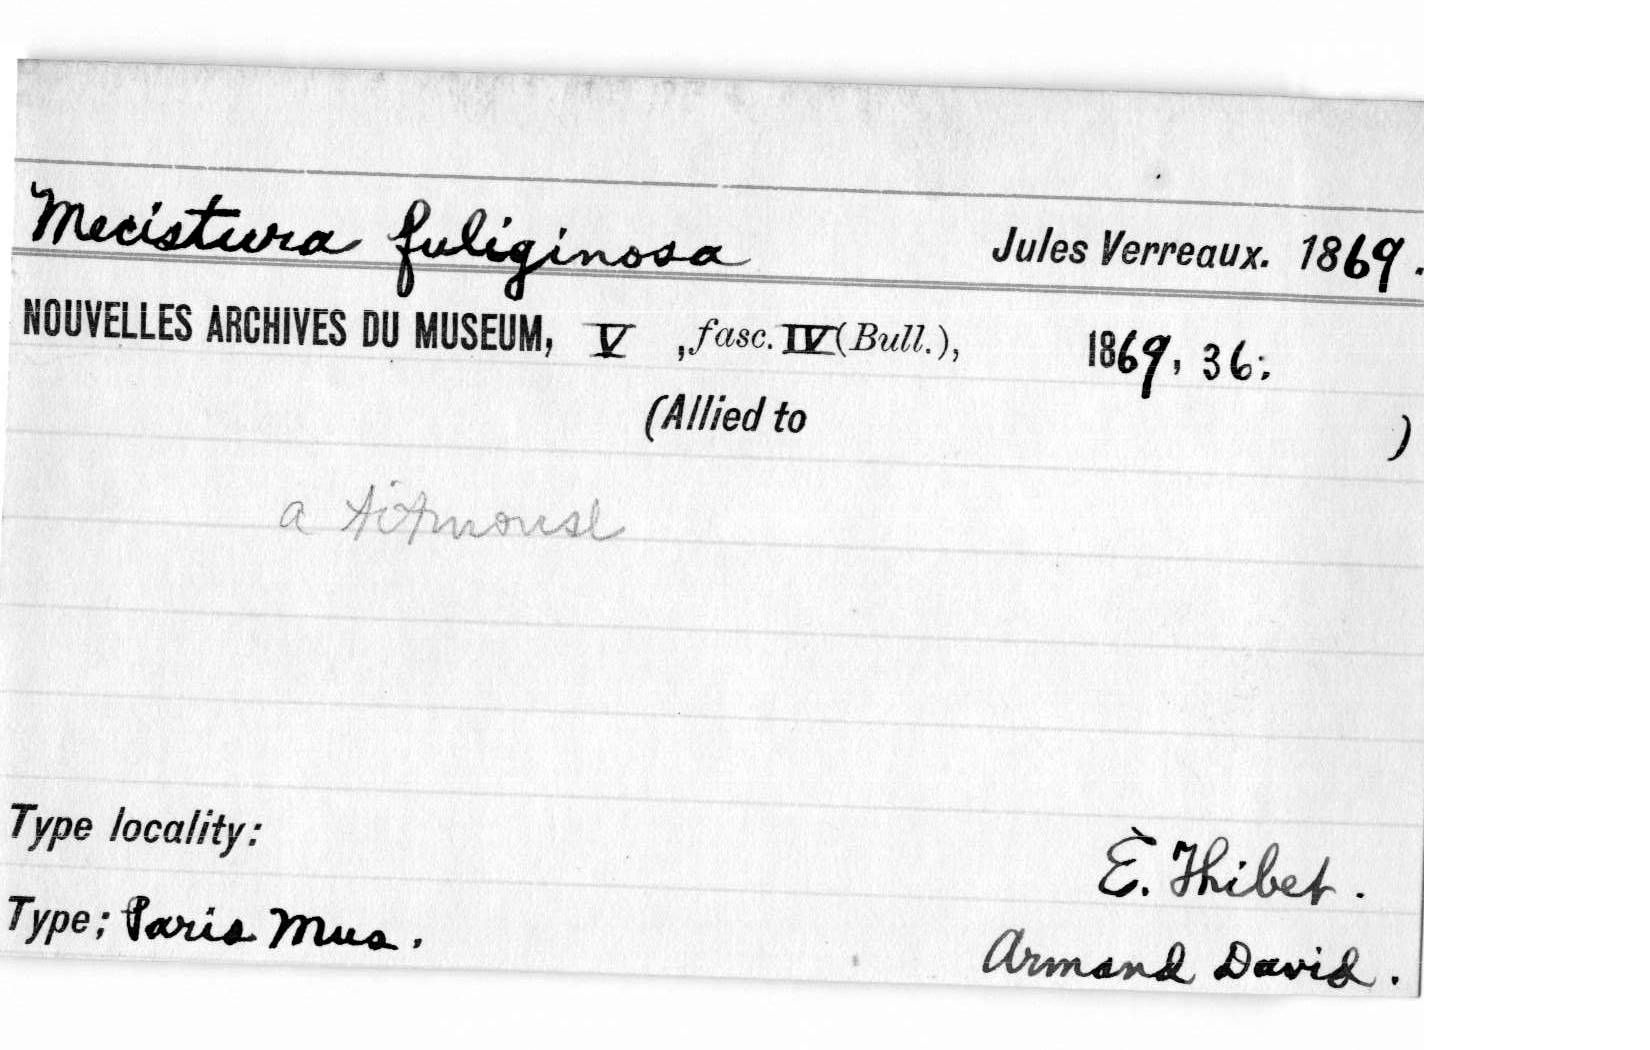 Mecistura fuliginosa Jules Verreaux. 1869.
NOUVELLES ARCHIVES DU MUSEUM, V , fasc. IV (Bull.), 1869, 36:
(Allied to )
a titmouse
Type locality: È. Thibet.
Type; Paris Mus. Armand David.